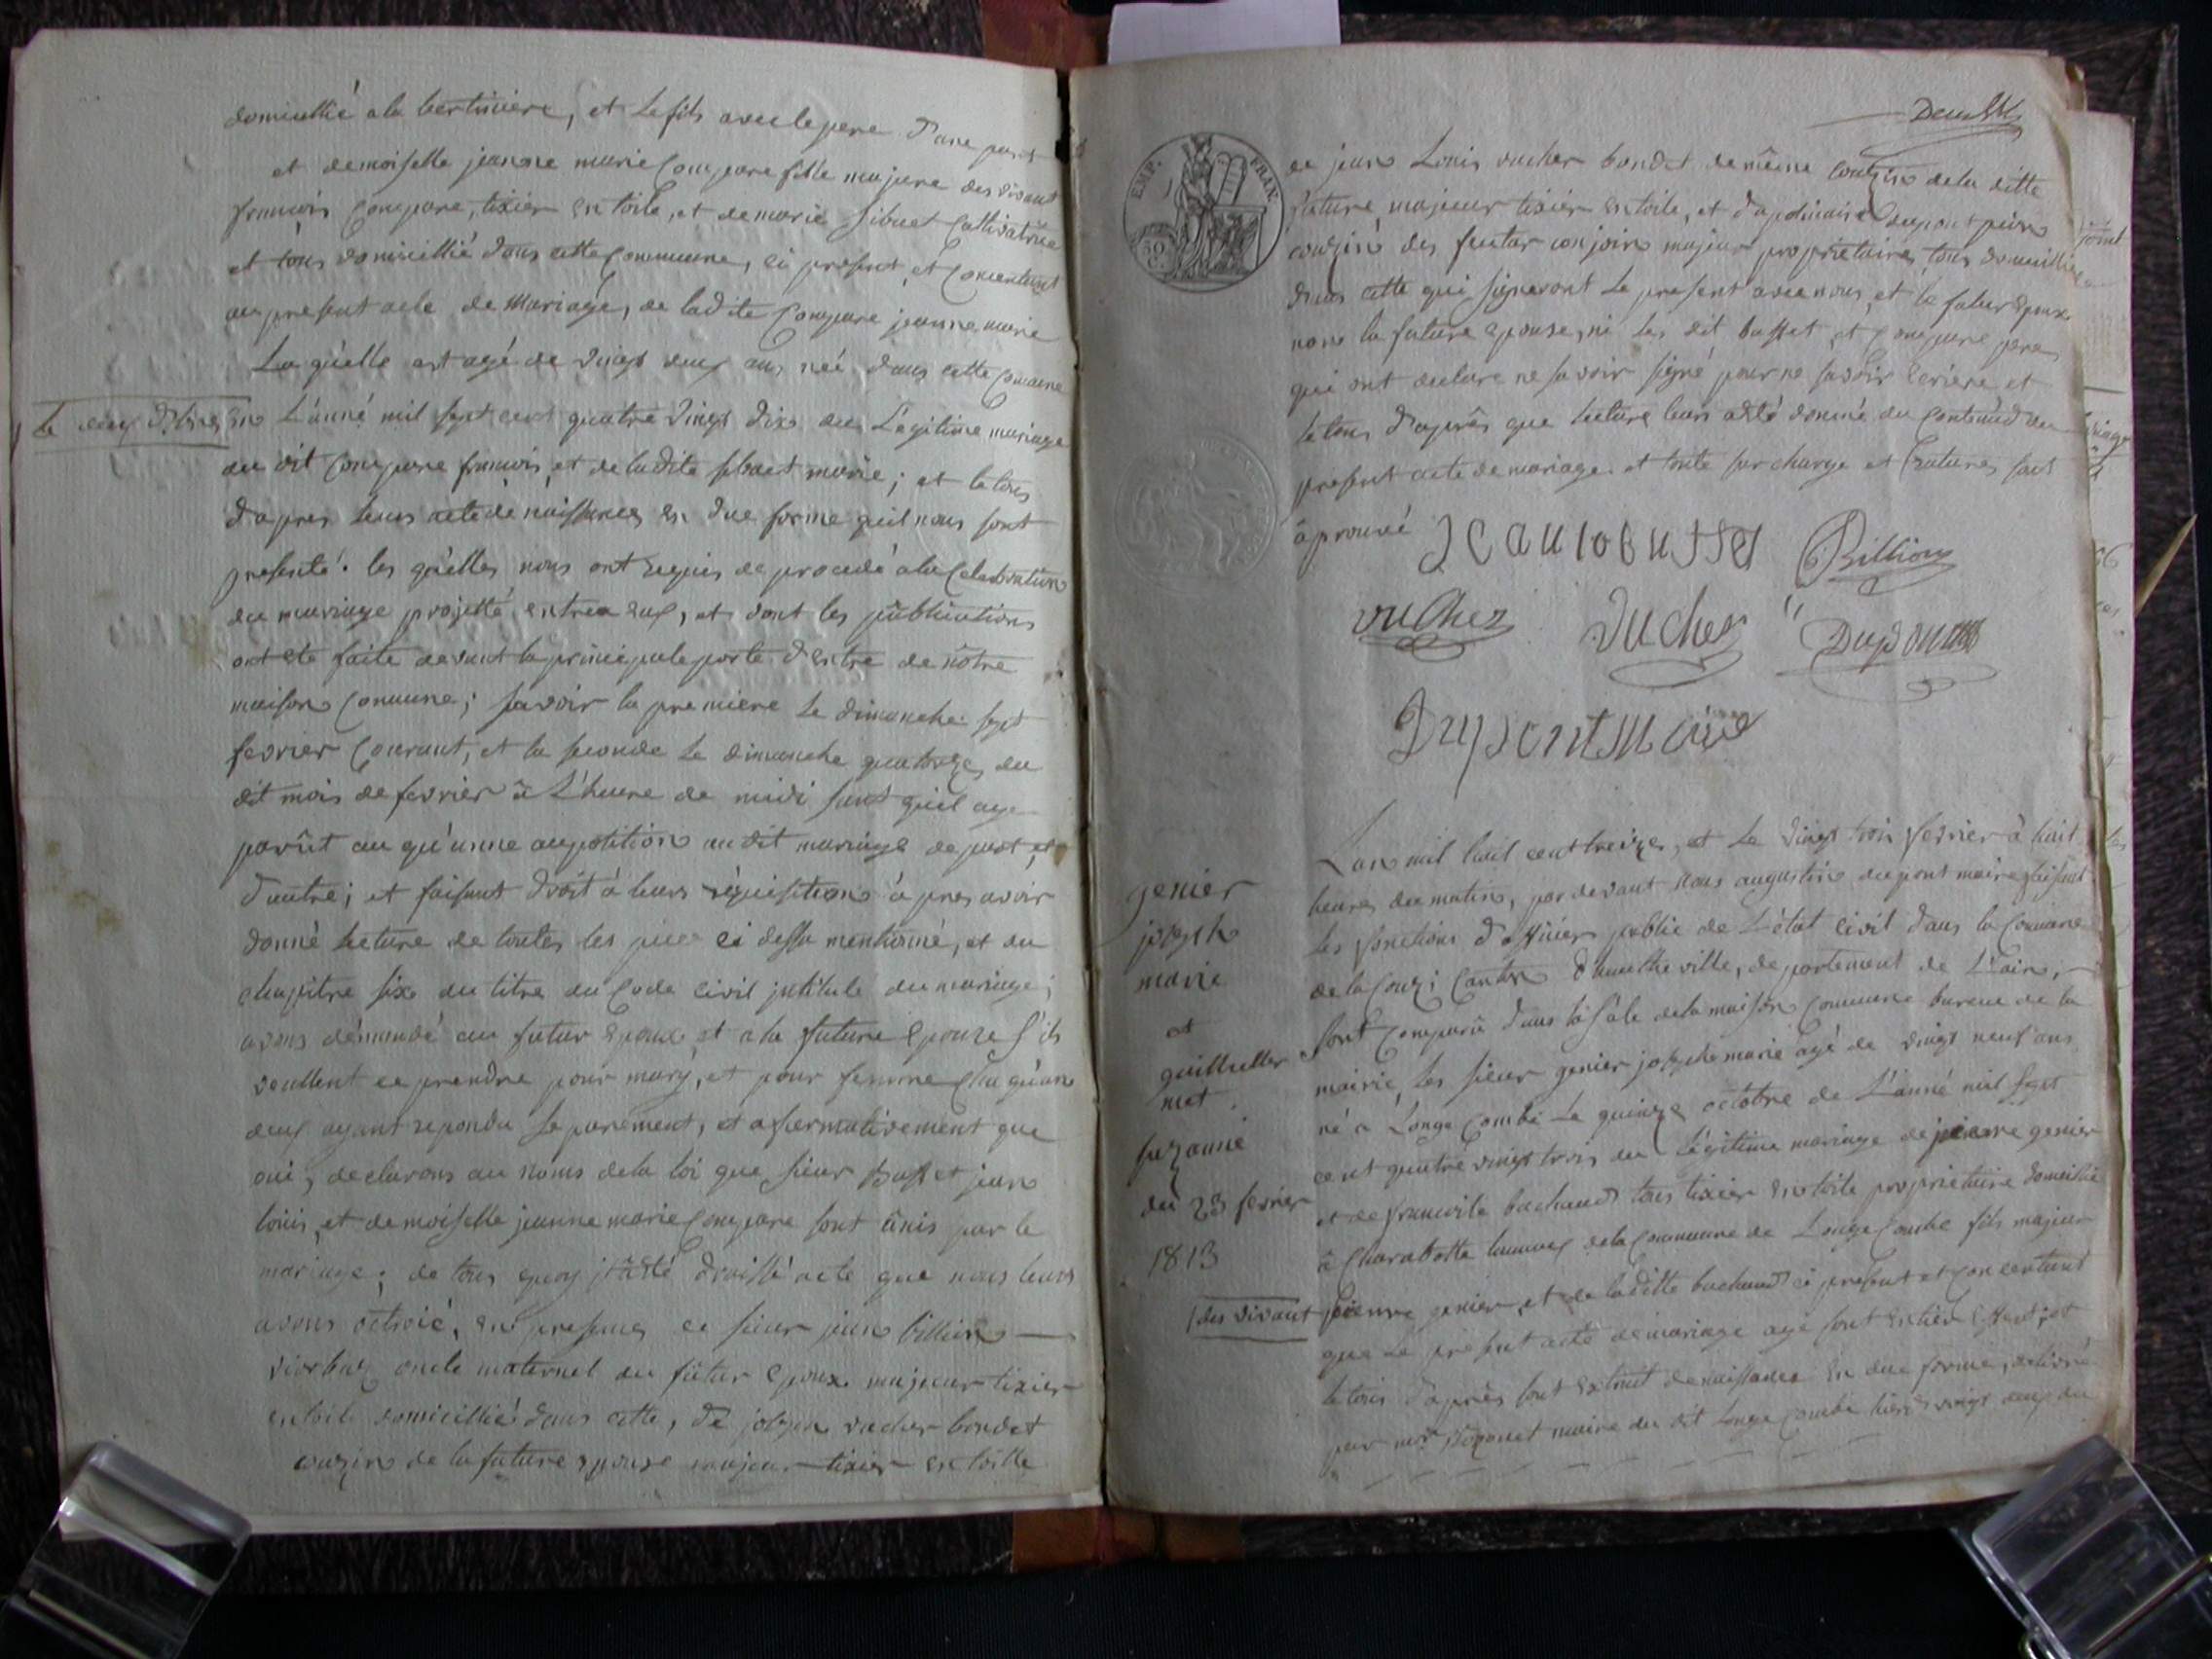 domicillié a la bertinière, et le fils avec le pere d'une part
et demoiselle jeanne marie Compare fille majure des vivant
francois Compare, tixier en toile, et de marie sibuet Cultivatrice
et tous domicillié dans cette Commune, ci present et Concentant
au present acte de mariage, de ladite Compare jeanne marie
La quelle est agé de vingt deux ans neé dans cette Comune
le
en L'anné mil sept cent quatre vingt dix du Légitime mariage
du dit Compare francois, et de ladite sibuet marie; et le tous
d'apres leurs acte de naissances en due forme quil nous sont
presenté. les quelles nous ont requis de procedé a la Celebration
du mariage projetté entrea eux, et dont les publications
ont été faite devant la principale porte d'entre de nôtre
maison Commune; savoir la premiere le dimanche sept
fevrier Courant, et la seconde le dimanche quatorze du
dit mois de fevrier à L'heure de midi sant quil aye
parût au qu'unne aupotition au dit mariage de part et
d'autre; et faisant droit à leurs réquisition à pres avoir
donné lecture de toutes les piece ci dessu mentionné, et du
chapitre six du titre du Code Civil intitule du mariage;
avons démandé au futur epoux et a la future epouze s'ils
veullent ce prendre pour mary, et pour femme chaqu'un
deux ayant repondu separement, et afermativement que
oui, declarons au noms de la loi que sieur Busset jean
louis, et demoiselle jeanne marie Compare sont ûnis par le
mariage; de tous quoy j'ai dressé acte que nous leurs
avons octroié, en presence ce sieur jean billion
oncle maternel du futur epoux majeur tixier
en toile domicillié dans cette, de joseph vucher bondet
couzin de la future epouse majeur tixier en toille
Deux
EMP. FRAN.
50 C.
ce jean Louis vucher bondet de même couzin de la ditte
future, majeur tixier en toile, et d'apolinaire dupont
couzin des feutur conjoin majeur propriétaire, tous domicillié
dans cette qui signeront le present avec nous, et le futur epoux
non la future epouse, ni les dit busset, et Compare peres
qui ont declare ne savoir signé pour ne savoir ecriere et
le tous d'aprês que lecture leurs a été donné du Contenüd du
present acte de mariage. et toute surcharge et ratures sont
âprouvé
Jean lobusset Billion
vucher vucher Dupont
Dupont Maire
genier
joseph
marie
et
guilluller
met
suzanne
du 23 fevrier
1813
L'an mil huit cent treize, et le vingt trois fevrier à huit
heures du matin, par devant nous augustin dupont maire faisant
les fonctions d'officier public de L'état Civil dans la Comune
de la Couzi Canton d'hautheville, departement de L'ain,
sont comparu dans la sâle de la maison Commune bureau de la
mairie, les sieur genier joseph marie agé de vingt neuf ans
né a Longe Combe le quinze octobre de L'anné mil sept
cent quatre vingt trois du Légitime mariage de pierre genier
et de francoile bachaud tous tixier en toile propriétaire domicillié
à Charabotte hameau de la Commune de Longe Combe fils majeur
/des vivant pierre genier, et de ladite bachaud ci present et Concentant
que le present acte de mariage aye sont entier effent; et
le tous d'aprês sont extrait de naissance en due forme, delivré
par mr maire du dit Longe Combe hier vingt deux du